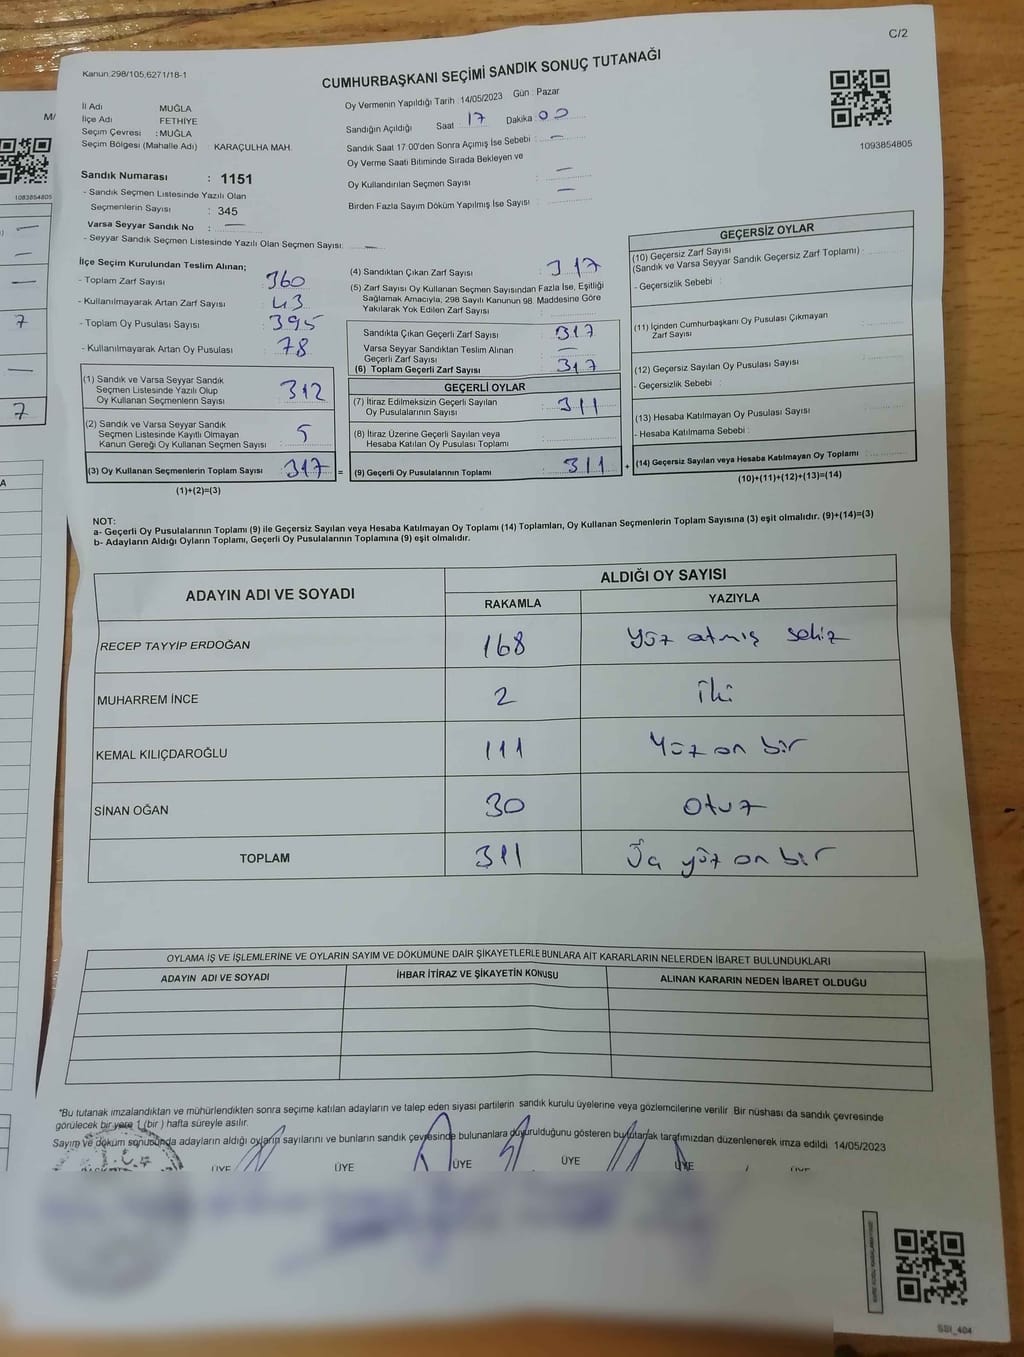 C/2
Kanun 298/105,6271/18-1
CUMHURBAŞKANI SEÇİMİ SANDIK SONUÇ TUTANAĞI
İl Adı MUĞLA
İlçe Adı FETHİYE
Seçim Çevresi : MUĞLA
Seçim Bölgesi (Mahalle Adı) KARAÇULHA MAH.
Sandık Numarası : 1151
- Sandık Seçmen Listesinde Yazılı Olan
Seçmenlerin Sayısı : 345
Varsa Seyyar Sandık No : —
- Seyyar Sandık Seçmen Listesinde Yazılı Olan Seçmen Sayısı: —
Oy Vermenin Yapıldığı Tarih : 14/05/2023 Gün : Pazar
Sandığın Açıldığı Saat 17 Dakika : 00
Sandık Saat 17:00'den Sonra Açımış İse Sebebi : —
Oy Verme Saati Bitiminde Sırada Bekleyen ve
Oy Kullandırılan Seçmen Sayısı : —
Birden Fazla Sayım Döküm Yapılmış İse Sayısı : —
1093854805
İlçe Seçim Kurulundan Teslim Alınan;
- Toplam Zarf Sayısı : 360
- Kullanılmayarak Artan Zarf Sayısı : 43
- Toplam Oy Pusulası Sayısı : 395
- Kullanılmayarak Artan Oy Pusulası : 78
(1) Sandık ve Varsa Seyyar Sandık
Seçmen Listesinde Yazılı Olup
Oy Kullanan Seçmenlerin Sayısı : 312
(2) Sandık ve Varsa Seyyar Sandık
Seçmen Listesinde Kayıtlı Olmayan
Kanun Gereği Oy Kullanan Seçmen Sayısı : 5
(3) Oy Kullanan Seçmenlerin Toplam Sayısı : 317 =
(1)+(2)=(3)
(4) Sandıktan Çıkan Zarf Sayısı : 317
(5) Zarf Sayısı Oy Kullanan Seçmen Sayısından Fazla İse, Eşitliği
Sağlamak Amacıyla, 298 Sayılı Kanunun 98. Maddesine Göre
Yakılarak Yok Edilen Zarf Sayısı :
Sandıkta Çıkan Geçerli Zarf Sayısı : 317
Varsa Seyyar Sandıktan Teslim Alınan
Geçerli Zarf Sayısı : —
(6) Toplam Geçerli Zarf Sayısı : 317
GEÇERLİ OYLAR
(7) İtiraz Edilmeksizin Geçerli Sayılan
Oy Pusulalarının Sayısı : 311
(8) İtiraz Üzerine Geçerli Sayılan veya
Hesaba Katılan Oy Pusulası Toplamı :
(9) Geçerli Oy Pusulalarının Toplamı : 311 +
GEÇERSİZ OYLAR
(10) Geçersiz Zarf Sayısı
(Sandık ve Varsa Seyyar Sandık Geçersiz Zarf Toplamı) :
- Geçersizlik Sebebi :
(11) İçinden Cumhurbaşkanı Oy Pusulası Çıkmayan
Zarf Sayısı :
(12) Geçersiz Sayılan Oy Pusulası Sayısı :
- Geçersizlik Sebebi :
(13) Hesaba Katılmayan Oy Pusulası Sayısı :
- Hesaba Katılmama Sebebi :
(14) Geçersiz Sayılan veya Hesaba Katılmayan Oy Toplamı :
(10)+(11)+(12)+(13)=(14)
NOT:
a- Geçerli Oy Pusulalarının Toplamı (9) ile Geçersiz Sayılan veya Hesaba Katılmayan Oy Toplamı (14) Toplamları, Oy Kullanan Seçmenlerin Toplam Sayısına (3) eşit olmalıdır. (9)+(14)=(3)
b- Adayların Aldığı Oyların Toplamı, Geçerli Oy Pusulalarının Toplamına (9) eşit olmalıdır.
ADAYIN ADI VE SOYADI
ALDIĞI OY SAYISI
RAKAMLA YAZIYLA
RECEP TAYYİP ERDOĞAN 168 Yüz atmış sekiz
MUHARREM İNCE 2 İki
KEMAL KILIÇDAROĞLU 111 Yüz on bir
SİNAN OĞAN 30 Otuz
TOPLAM 311 Üç yüz on bir
OYLAMA İŞ VE İŞLEMLERİNE VE OYLARIN SAYIM VE DÖKÜMÜNE DAİR ŞİKAYETLERLE BUNLARA AİT KARARLARIN NELERDEN İBARET BULUNDUKLARI
ADAYIN ADI VE SOYADI İHBAR İTİRAZ VE ŞİKAYETİN KONUSU ALINAN KARARIN NEDEN İBARET OLDUĞU
*Bu tutanak imzalandıktan ve mühürlendikten sonra seçime katılan adayların ve talep eden siyasi partilerin sandık kurulu üyelerine veya gözlemcilerine verilir. Bir nüshası da sandık çevresinde
görülecek bir yere 1 (bir) hafta süreyle asılır.
Sayım ve döküm sonusunda adayların aldığı oyların sayılarını ve bunların sandık çevresinde bulunanlara duyurulduğunu gösteren bu tutanak tarafımızdan düzenlenerek imza edildi 14/05/2023
ÜYE ÜYE ÜYE ÜYE ÜYE ÜYE
SSI_404
M/
1083854805
7
7
A